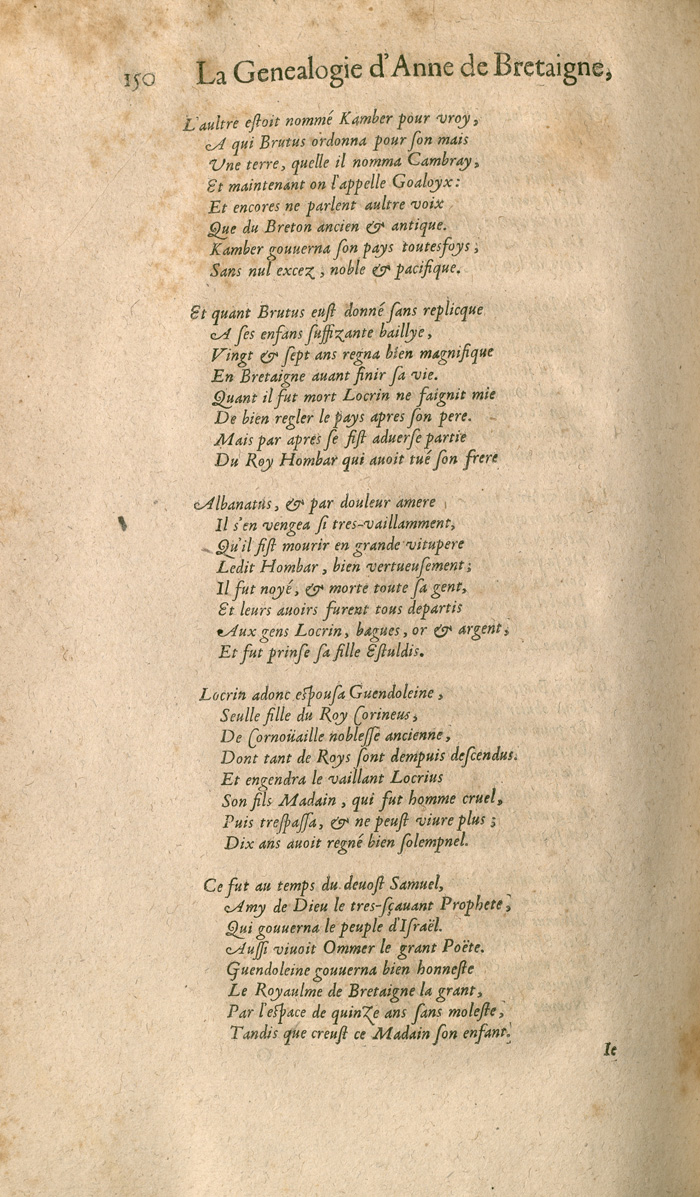 150 La Genealogie d'Anne de Bretaigne,
L'aultre eſtoit nommé Kamber pour vroy,
A qui Brutus ordonna pour ſon mais
Vne terre, quelle il nomma Cambray,
Et maintenant on l'appelle Goaloyx:
Et encores ne parlent aultre voix
Que du Breton ancien & antique.
Kamber gouuerna ſon pays toutesfoys,
Sans nul excez, noble & pacifique.
Et quant Brutus euſt donné ſans replicque
A ſes enfans ſuffizante baillye,
Vingt & ſept ans regna bien magnifique
En Bretaigne auant finir ſa vie.
Quant il fut mort Locrin ne faignit mie
De bien regler le pays apres ſon pere.
Mais par apres ſe fiſt aduerſe partie
Du Roy Hombar qui auoit tué ſon frere
Albanatus, & par douleur amere
Il s'en vengea ſi tres-vaillamment,
Qu'il fiſt mourir en grande vitupere
Ledit Hombar, bien vertueuſement;
Il fut noyé, & morte toute ſa gent,
Et leurs auoirs furent tous departis
Aux gens Locrin, bagues, or & argent,
Et fut prinſe ſa fille Eſtuldis.
Locrin adonc eſpouſa Guendoleine,
Seulle fille du Roy Corineus,
De Cornoüaille nobleſſe ancienne,
Dont tant de Roys ſont dempuis deſcendus.
Et engendra le vaillant Locrius
Son fils Madain, qui fut homme cruel,
Puis treſpaſſa, & ne peuſt viure plus;
Dix ans auoit regné bien ſolempnel.
Ce fut au temps du deuoſt Samuel,
Amy de Dieu le tres-sçauant Prophete,
Qui gouuerna le peuple d'Iſraël.
Auſſi viuoit Ommer le grant Poëte.
Guendoleine gouuerna bien honneſte
Le Royaulme de Bretaigne la grant,
Par l'eſpace de quinze ans ſans moleſte,
Tandis que creuſt ce Madain ſon enfant.
Ie